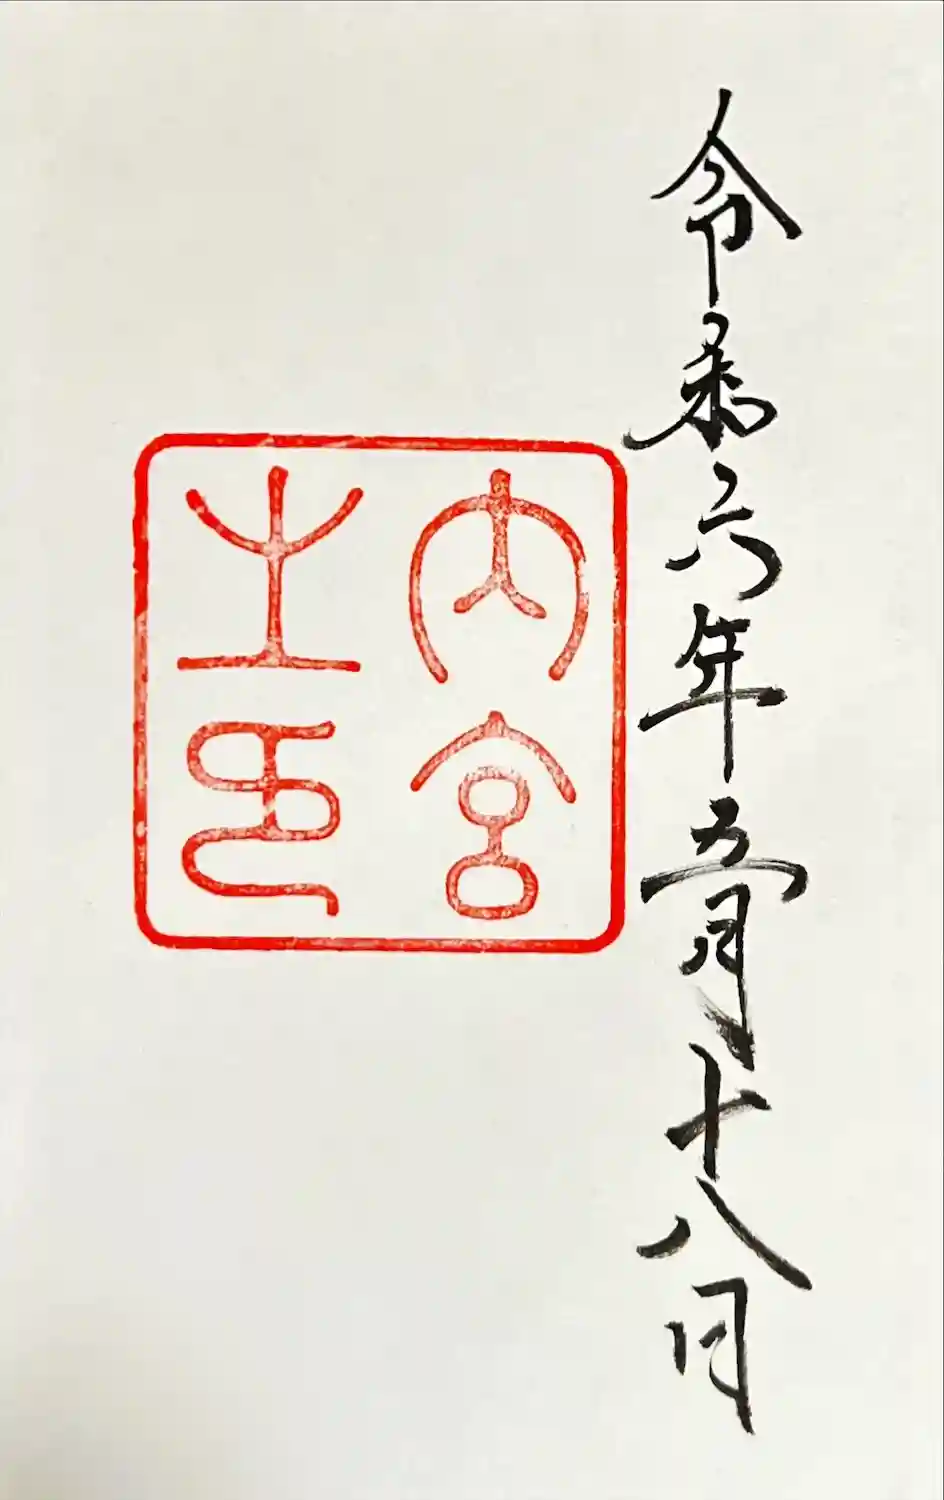 令和六年五月十八日
内宮
之印